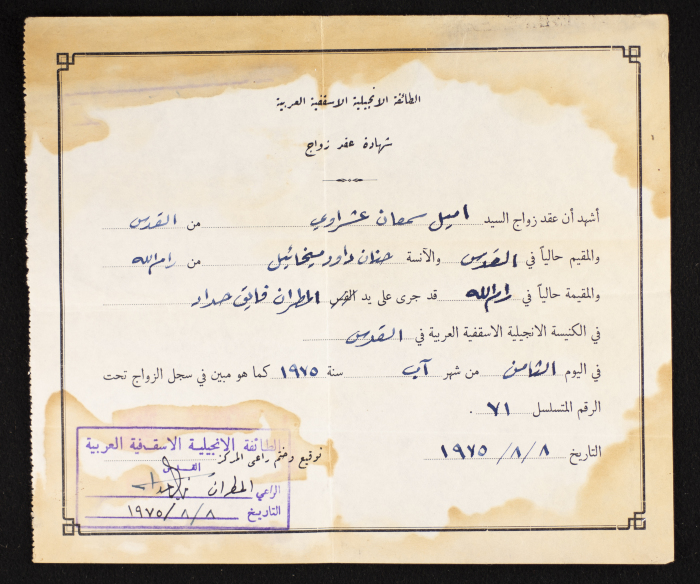 الطائفة الانجيلية الاسقفية العربية
شهادة عقد زواج
أشهد أن عقد زواج السيد اميل سمعان عشراوي من القدس
والمقيم حالياً في القدس والآنسة حنان داود ميخائيل من رام الله
والمقيمة حالياً في رام الله قد جرى على يد القس المطران فايق حداد
في الكنيسة الانجيلية الاسقفية العربية في القدس
في اليوم الثامن من شهر آب سنة ١٩٧٥ كما هو مبين في سجل الزواج تحت
الرقم المتسلسل ٧١ .
التاريخ ٨/٨/١٩٧٥
توقيع وختم راعي المركز
الطائفة الانجيلية الاسقفية العربية
القدس
الراعي المطران
التاريخ ٨/٨/١٩٧٥